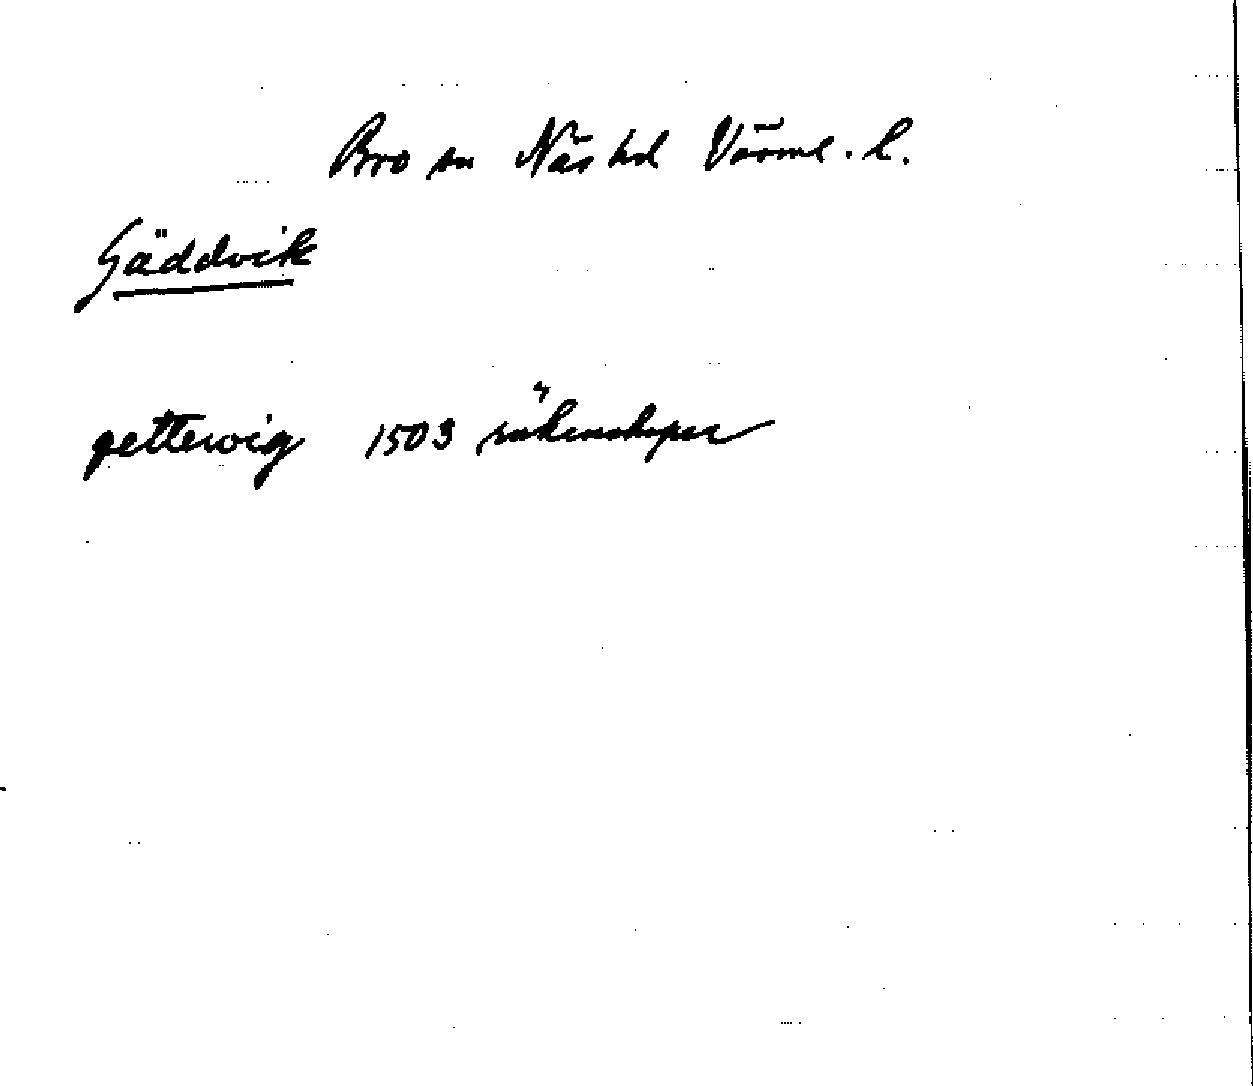 Bro sn Näs hd Värml. l.
Gäddvik
gettewig 1503 räkenskaper